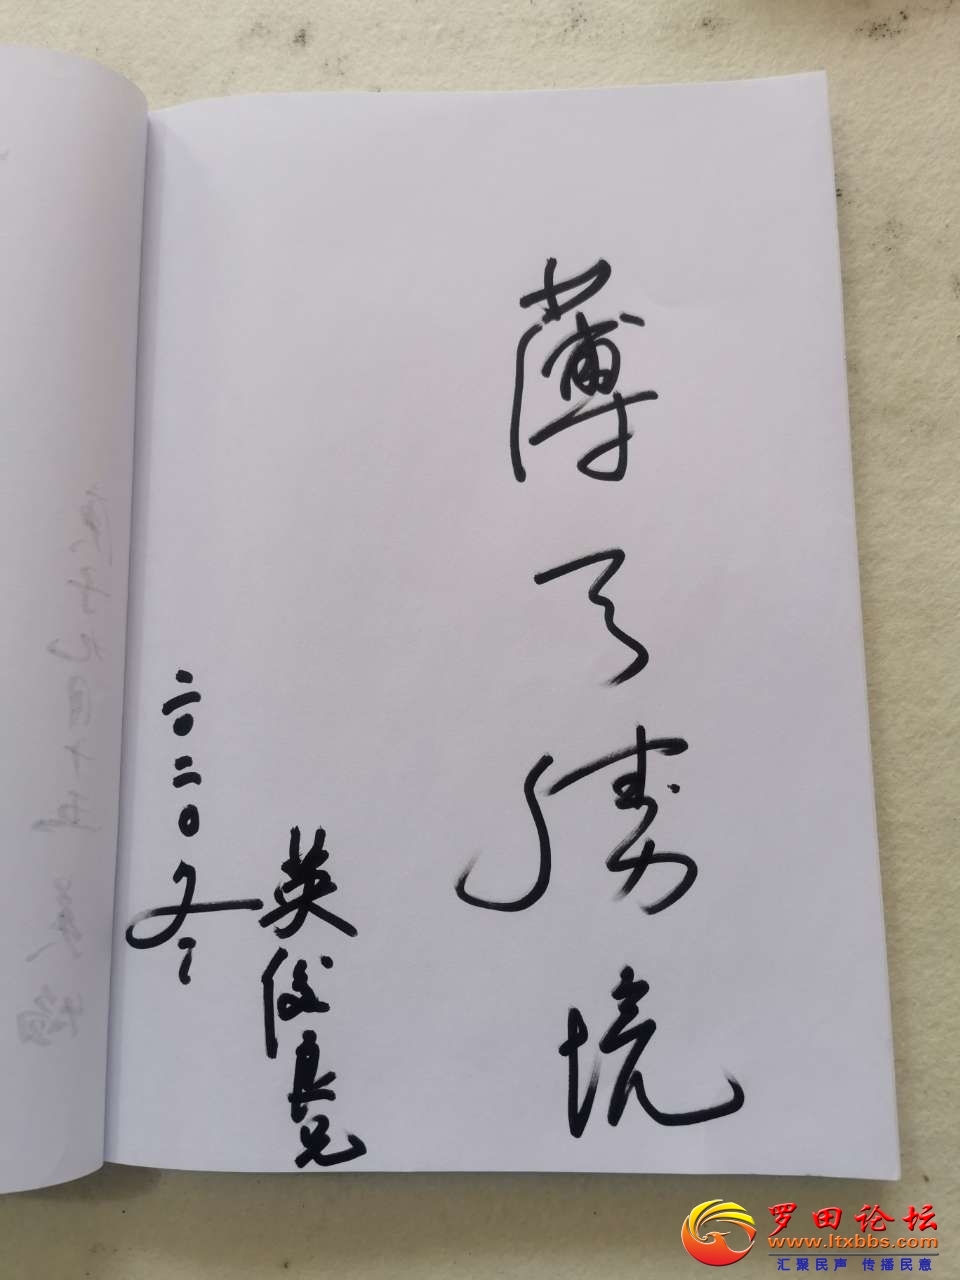 薄刀勝境
英俊良兄
二〇二〇
罗田论坛
www.ltxbbs.com
汇聚民声 传播民意